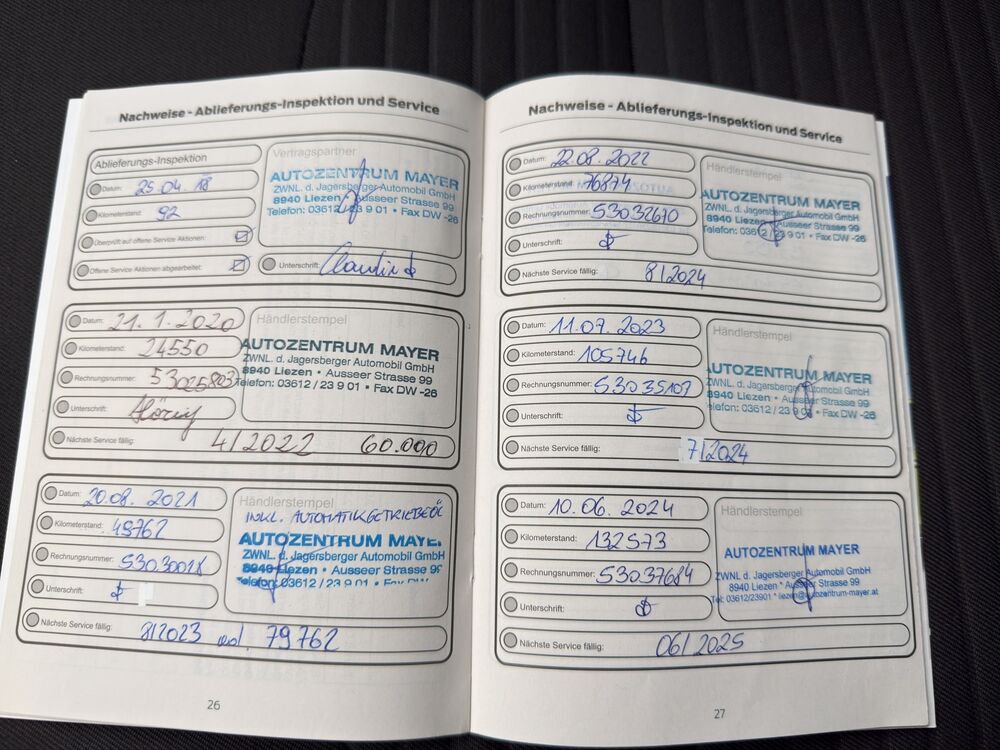 Nachweise - Ablieferungs-Inspektion und Service
Ablieferungs-Inspektion
Datum: 25.04.18
Kilometerstand: 92
Überprüft auf offene Service Aktionen:
Offene Service Aktionen abgearbeitet:
Vertragspartner
AUTOZENTRUM MAYER
ZWNL. d. Jagersberger Automobil GmbH
8940 Liezen • Ausseer Strasse 99
Telefon: 03612/23 9 01 • Fax DW -26
Unterschrift:
Datum: 21.1.2020
Kilometerstand: 24550
Rechnungsnummer: 53025803
Unterschrift:
Händlerstempel
AUTOZENTRUM MAYER
ZWNL. d. Jagersberger Automobil GmbH
8940 Liezen • Ausseer Strasse 99
Telefon: 03612/23 9 01 • Fax DW -26
Nächste Service fällig: 4/2022 60.000
Datum: 20.08.2021
Kilometerstand: 49762
Rechnungsnummer: 53030028
Unterschrift:
Händlerstempel
INKL. AUTOMATIKGETRIEBEÖL
AUTOZENTRUM MAYE.
ZWNL. d. Jagersberger Automobil GmbH
8940 Liezen • Ausseer Strasse 99
Telefon: 03612/23 9 01 • Fax DW
Nächste Service fällig: 8/2023 od. 79762
26
Nachweise - Ablieferungs-Inspektion und Service
Datum: 22.08.2022
Kilometerstand: 76874
Rechnungsnummer: 53032670
Unterschrift:
Händlerstempel
AUTOZENTRUM MAYER
ZWNL. d. Jagersberger Automobil GmbH
8940 Liezen • Ausseer Strasse 99
Telefon: 03612/23 9 01 • Fax DW -26
Nächste Service fällig: 8/2024
Datum: 11.07.2023
Kilometerstand: 105746
Rechnungsnummer: 53035107
Unterschrift:
Händlerstempel
AUTOZENTRUM MAYER
ZWNL. d. Jagersberger Automobil GmbH
8940 Liezen • Ausseer Strasse 99
Telefon: 03612/23 9 01 • Fax DW -26
Nächste Service fällig: 7/2024
Datum: 10.06.2024
Kilometerstand: 132573
Rechnungsnummer: 53037684
Unterschrift:
Händlerstempel
AUTOZENTRUM MAYER
ZWNL. d. Jagersberger Automobil GmbH
8940 Liezen * Ausseer Strasse 99
Tel: 03612/23901 * liezen@autozentrum-mayer.at
Nächste Service fällig: 06/2025
27